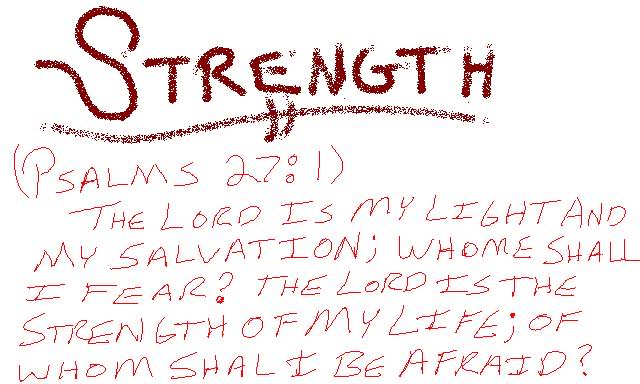 STRENGTH
(PSALMS 27:1)
THE LORD IS MY LIGHT AND
MY SALVATION; WHOME SHALL
I FEAR? THE LORD IS THE
STRENGTH OF MY LIFE; OF
WHOM SHAL I BE AFRAID?